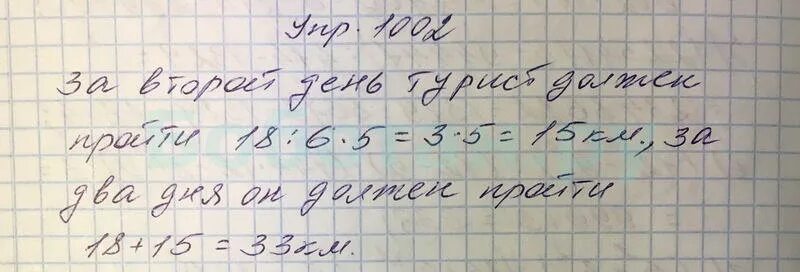 Упр. 1002
За второй день турист должен
пройти 18 : 6 · 5 = 3 · 5 = 15 км., за
два дня он должен пройти
18 + 15 = 33 км.